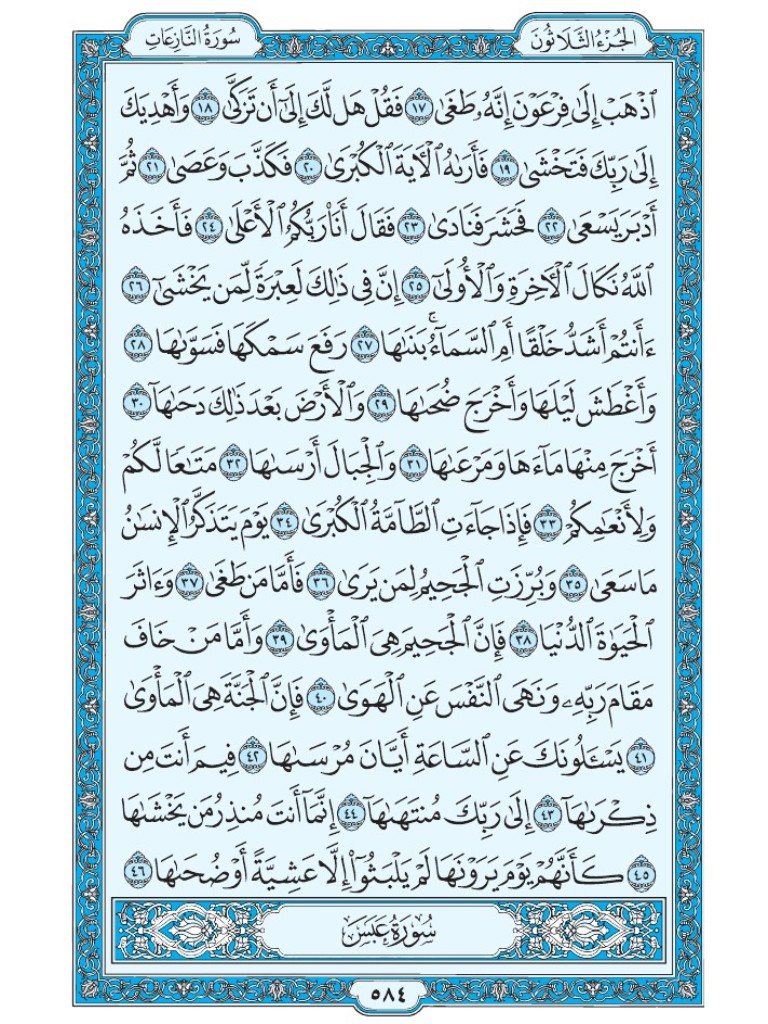 سُورَةُ النَّازِعَاتِ
الجُزْءُ الثَّلَاثُونَ
ٱذْهَبْ إِلَىٰ فِرْعَوْنَ إِنَّهُۥ طَغَىٰ ١٧ فَقُلْ هَل لَّكَ إِلَىٰٓ أَن تَزَكَّىٰ ١٨ وَأَهْدِيَكَ
إِلَىٰ رَبِّكَ فَتَخْشَىٰ ١٩ فَأَرَىٰهُ ٱلْـَٔايَةَ ٱلْكُبْرَىٰ ٢٠ فَكَذَّبَ وَعَصَىٰ ٢١ ثُمَّ
أَدْبَرَ يَسْعَىٰ ٢٢ فَحَشَرَ فَنَادَىٰ ٢٣ فَقَالَ أَنَا۠ رَبُّكُمُ ٱلْأَعْلَىٰ ٢٤ فَأَخَذَهُ
ٱللَّهُ نَكَالَ ٱلْـَٔاخِرَةِ وَٱلْأُولَىٰٓ ٢٥ إِنَّ فِى ذَٰلِكَ لَعِبْرَةً لِّمَن يَخْشَىٰٓ ٢٦
ءَأَنتُمْ أَشَدُّ خَلْقًا أَمِ ٱلسَّمَآءُ ۚ بَنَىٰهَا ٢٧ رَفَعَ سَمْكَهَا فَسَوَّىٰهَا ٢٨
وَأَغْطَشَ لَيْلَهَا وَأَخْرَجَ ضُحَىٰهَا ٢٩ وَٱلْأَرْضَ بَعْدَ ذَٰلِكَ دَحَىٰهَآ ٣٠
أَخْرَجَ مِنْهَا مَآءَهَا وَمَرْعَىٰهَا ٣١ وَٱلْجِبَالَ أَرْسَىٰهَا ٣٢ مَتَـٰعًا لَّكُمْ
وَلِأَنْعَـٰمِكُمْ ٣٣ فَإِذَا جَآءَتِ ٱلطَّآمَّةُ ٱلْكُبْرَىٰ ٣٤ يَوْمَ يَتَذَكَّرُ ٱلْإِنسَـٰنُ
مَا سَعَىٰ ٣٥ وَبُرِّزَتِ ٱلْجَحِيمُ لِمَن يَرَىٰ ٣٦ فَأَمَّا مَن طَغَىٰ ٣٧ وَءَاثَرَ
ٱلْحَيَوٰةَ ٱلدُّنْيَا ٣٨ فَإِنَّ ٱلْجَحِيمَ هِىَ ٱلْمَأْوَىٰ ٣٩ وَأَمَّا مَنْ خَافَ
مَقَامَ رَبِّهِۦ وَنَهَى ٱلنَّفْسَ عَنِ ٱلْهَوَىٰ ٤٠ فَإِنَّ ٱلْجَنَّةَ هِىَ ٱلْمَأْوَىٰ
٤١ يَسْـَٔلُونَكَ عَنِ ٱلسَّاعَةِ أَيَّانَ مُرْسَىٰهَا ٤٢ فِيمَ أَنتَ مِن
ذِكْرَىٰهَآ ٤٣ إِلَىٰ رَبِّكَ مُنتَهَىٰهَآ ٤٤ إِنَّمَآ أَنتَ مُنذِرُ مَن يَخْشَىٰهَا
٤٥ كَأَنَّهُمْ يَوْمَ يَرَوْنَهَا لَمْ يَلْبَثُوٓا۟ إِلَّا عَشِيَّةً أَوْ ضُحَىٰهَا ٤٦
سُورَةُ عَبَسَ
٥٨٤